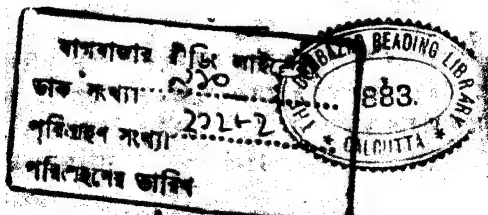 বাগবাজার রীডিং লাইব্রেরী
ডাক সংখ্যা
পরিগ্রহণ সংখ্যা
পরিগ্রহণের তারিখ
THE BAGBAZAR READING LIBRARY
883.
* CALCUTTA *